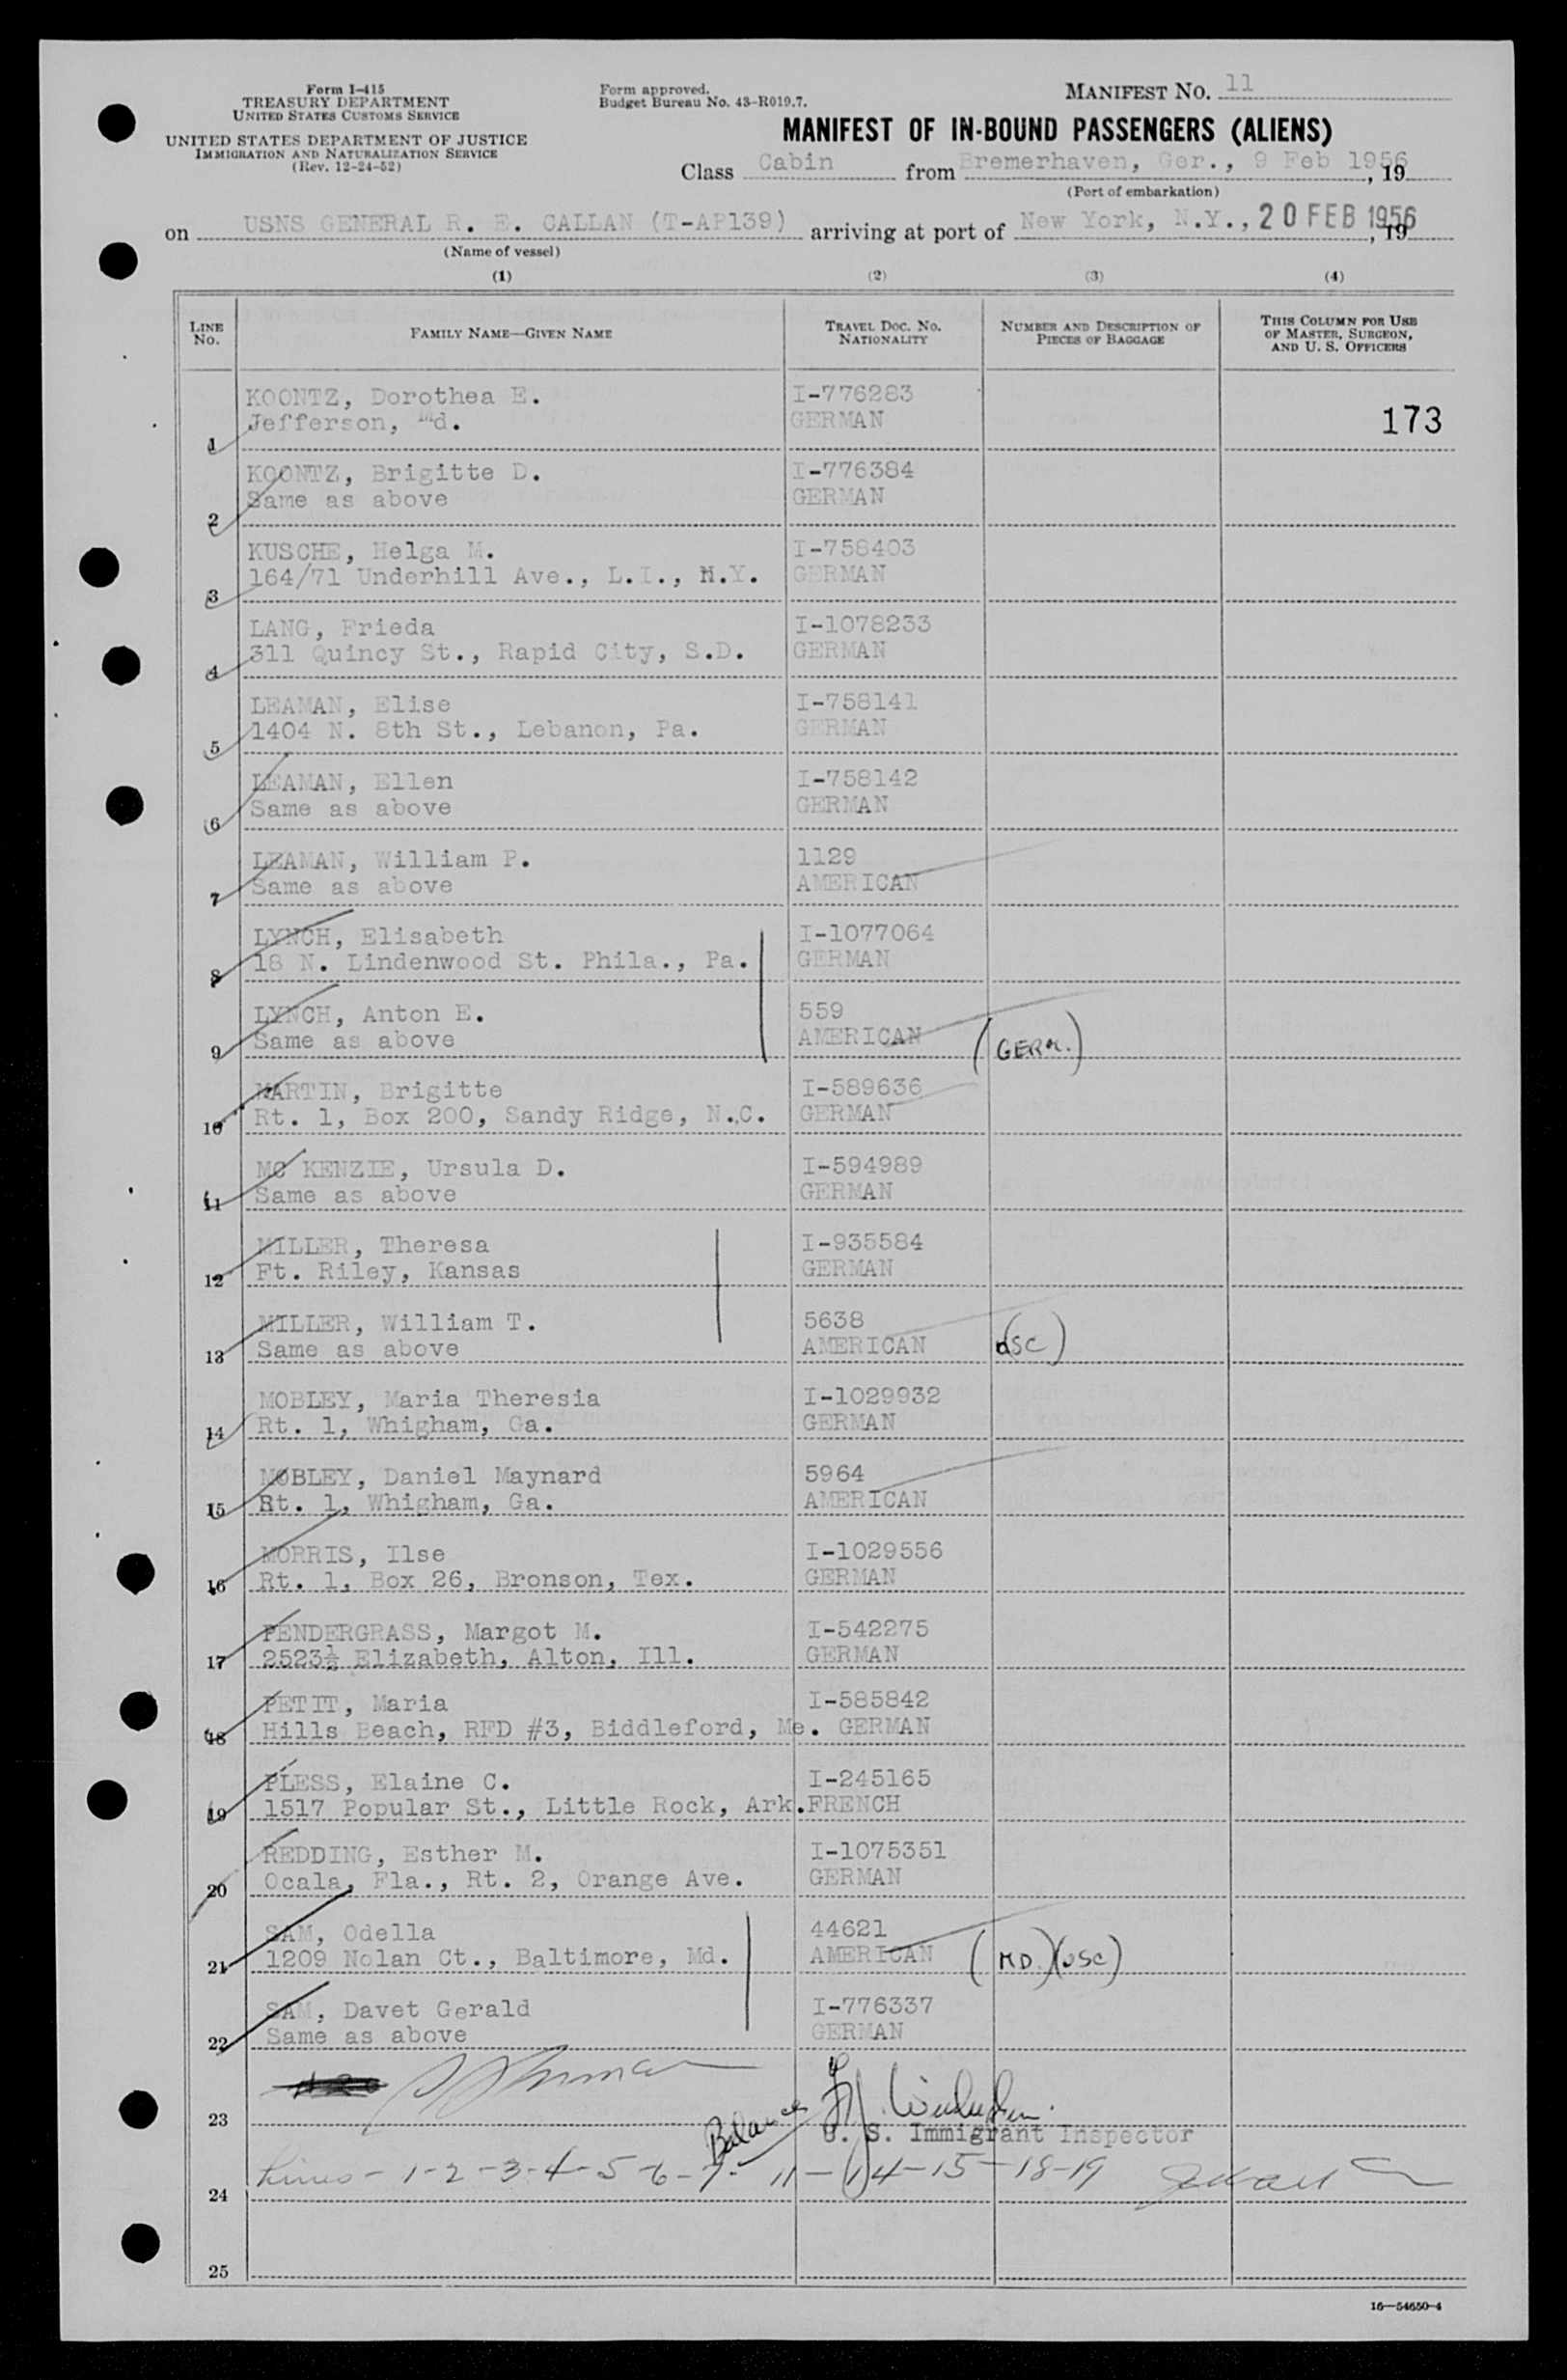 Form I-415
TREASURY DEPARTMENT
UNITED STATES CUSTOMS SERVICE
UNITED STATES DEPARTMENT OF JUSTICE
IMMIGRATION AND NATURALIZATION SERVICE
(Rev. 12-24-52)
Form approved.
Budget Bureau No. 43-R019.7.
MANIFEST NO. 11
MANIFEST OF IN-BOUND PASSENGERS (ALIENS)
Class Cabin from Bremerhaven, Ger., 9 Feb 1956, 19
(Port of embarkation)
on USNS GENERAL R. E. CALLAN (T-AP139) arriving at port of New York, N.Y., 20 FEB 1956, 19
(Name of vessel)
(1) (2) (3) (4)
LINE NO.
FAMILY NAME—GIVEN NAME
TRAVEL DOC. NO. NATIONALITY
NUMBER AND DESCRIPTION OF PIECES OF BAGGAGE
THIS COLUMN FOR USE OF MASTER, SURGEON, AND U. S. OFFICERS
KOONTZ, Dorothea E. I-776283
1 Jefferson, Md. GERMAN 173
KOONTZ, Brigitte D. I-776384
2 Same as above GERMAN
KUSCHE, Helga M. I-758403
3 164/71 Underhill Ave., L.I., N.Y. GERMAN
LANG, Frieda I-1078233
4 311 Quincy St., Rapid City, S.D. GERMAN
LEAMAN, Elise I-758141
5 1404 N. 8th St., Lebanon, Pa. GERMAN
LEAMAN, Ellen I-758142
6 Same as above GERMAN
LEAMAN, William P. 1129
7 Same as above AMERICAN
LYNCH, Elisabeth I-1077064
8 18 N. Lindenwood St. Phila., Pa. GERMAN
LYNCH, Anton E. 559
9 Same as above AMERICAN (GERM.)
MARTIN, Brigitte I-589636
10 Rt. 1, Box 200, Sandy Ridge, N.C. GERMAN
MC KENZIE, Ursula D. I-594989
11 Same as above GERMAN
MILLER, Theresa I-935584
12 Ft. Riley, Kansas GERMAN
MILLER, William T. 5638
13 Same as above AMERICAN (USC)
MOBLEY, Maria Theresia I-1029932
14 Rt. 1, Whigham, Ga. GERMAN
MOBLEY, Daniel Maynard 5964
15 Rt. 1, Whigham, Ga. AMERICAN
MORRIS, Ilse I-1029556
16 Rt. 1, Box 26, Bronson, Tex. GERMAN
PENDERGRASS, Margot M. I-542275
17 2523½ Elizabeth, Alton, Ill. GERMAN
PETIT, Maria I-585842
18 Hills Beach, RFD #3, Biddleford, Me. GERMAN
PLESS, Elaine C. I-245165
19 1517 Popular St., Little Rock, Ark. FRENCH
REDDING, Esther M. I-1075351
20 Ocala, Fla., Rt. 2, Orange Ave. GERMAN
SAM, Odella 44621
21 1209 Nolan Ct., Baltimore, Md. AMERICAN (MD.)(USC)
SAM, Davet Gerald I-776337
22 Same as above GERMAN
23 Balance
U. S. Immigrant Inspector
24 Lines - 1-2-3-4-5-6-7- 11-14-15-18-19
25
16—54650-4